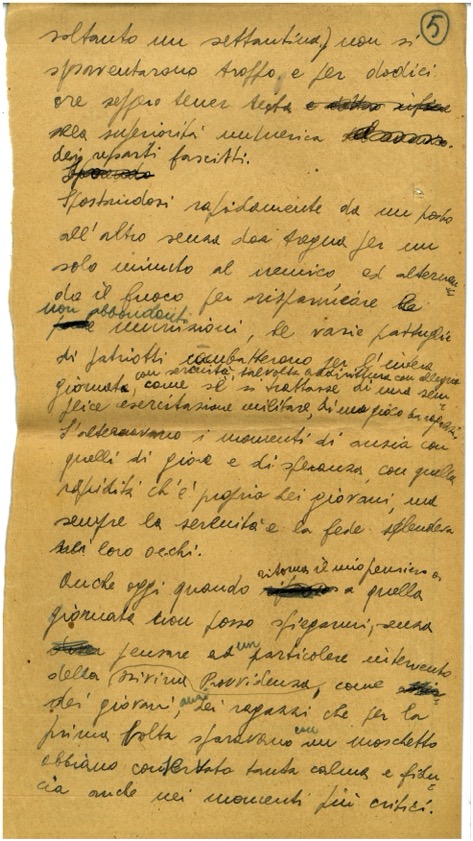 5
soltanto un settantina) non si
spaventarono troppo, e per dodici
ore seppero tener testa
alla superiorità numerica
dei reparti fascisti.
Spostandosi rapidamente da un posto
all'altro senza dar tregua per un
solo minuto al nemico ed alternan=
do il fuoco per risparmiare le
non abbondanti
munizioni, le varie pattuglie
di patriotti combatterono per l'intera
giornata, con serenità, talvolta addirittura con allegria
come se si trattasse di una sem=
plice esercitazione militare, di un gioco da ragazzi.
S'alternavano i momenti di ansia con
quelli di gioia e di speranza, con quella
rapidità ch'è propria dei giovani, ma
sempre la serenità e la fede splendeva
nei loro occhi.
Anche oggi quando ritorna il mio pensiero
a quella
giornata non posso spiegarmi, senza
pensare ad un particolare intervento
della Divina Provvidenza, come
dei giovani, anzi dei ragazzi che per la
prima volta sparavano con un moschetto
abbiano conservato tanta calma e fidu=
cia anche nei momenti più critici.